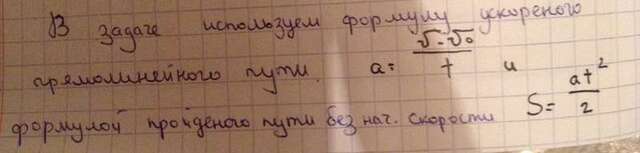 В задаче используем формулу ускореного
прямолинейного пути. a = (v - v₀)/t и
формулой пройденого пути без нач. скорости S = at²/2